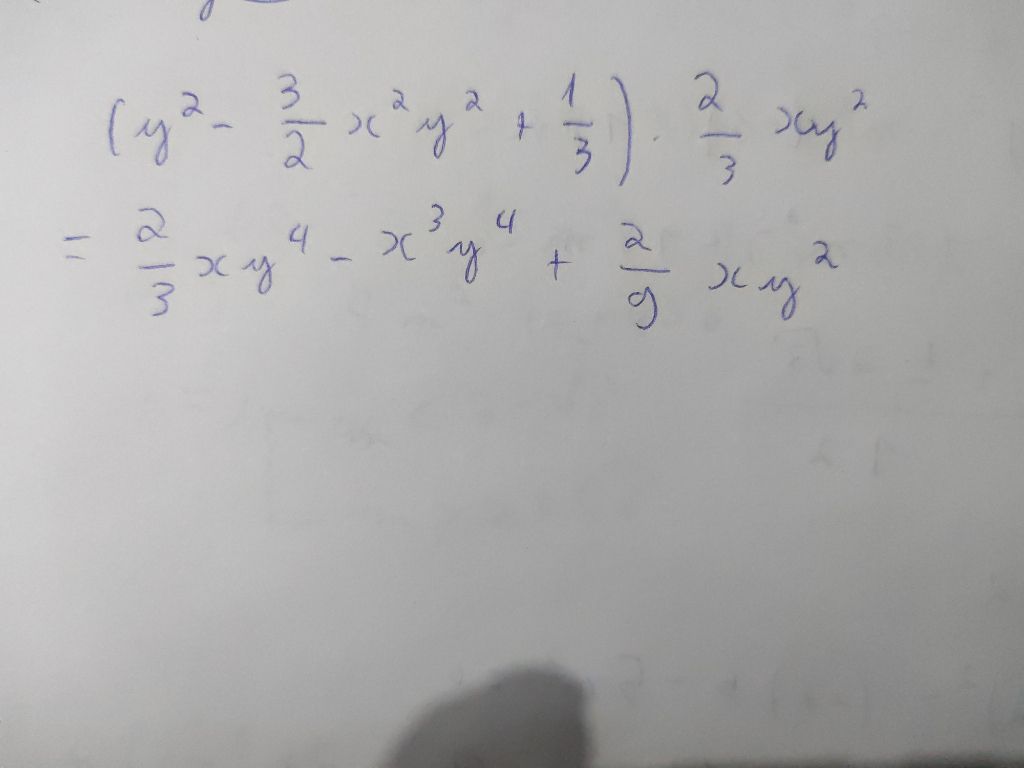 (y² - 3/2 x²y² + 1/3) · 2/3 xy²
= 2/3 xy⁴ - x³y⁴ + 2/9 xy²